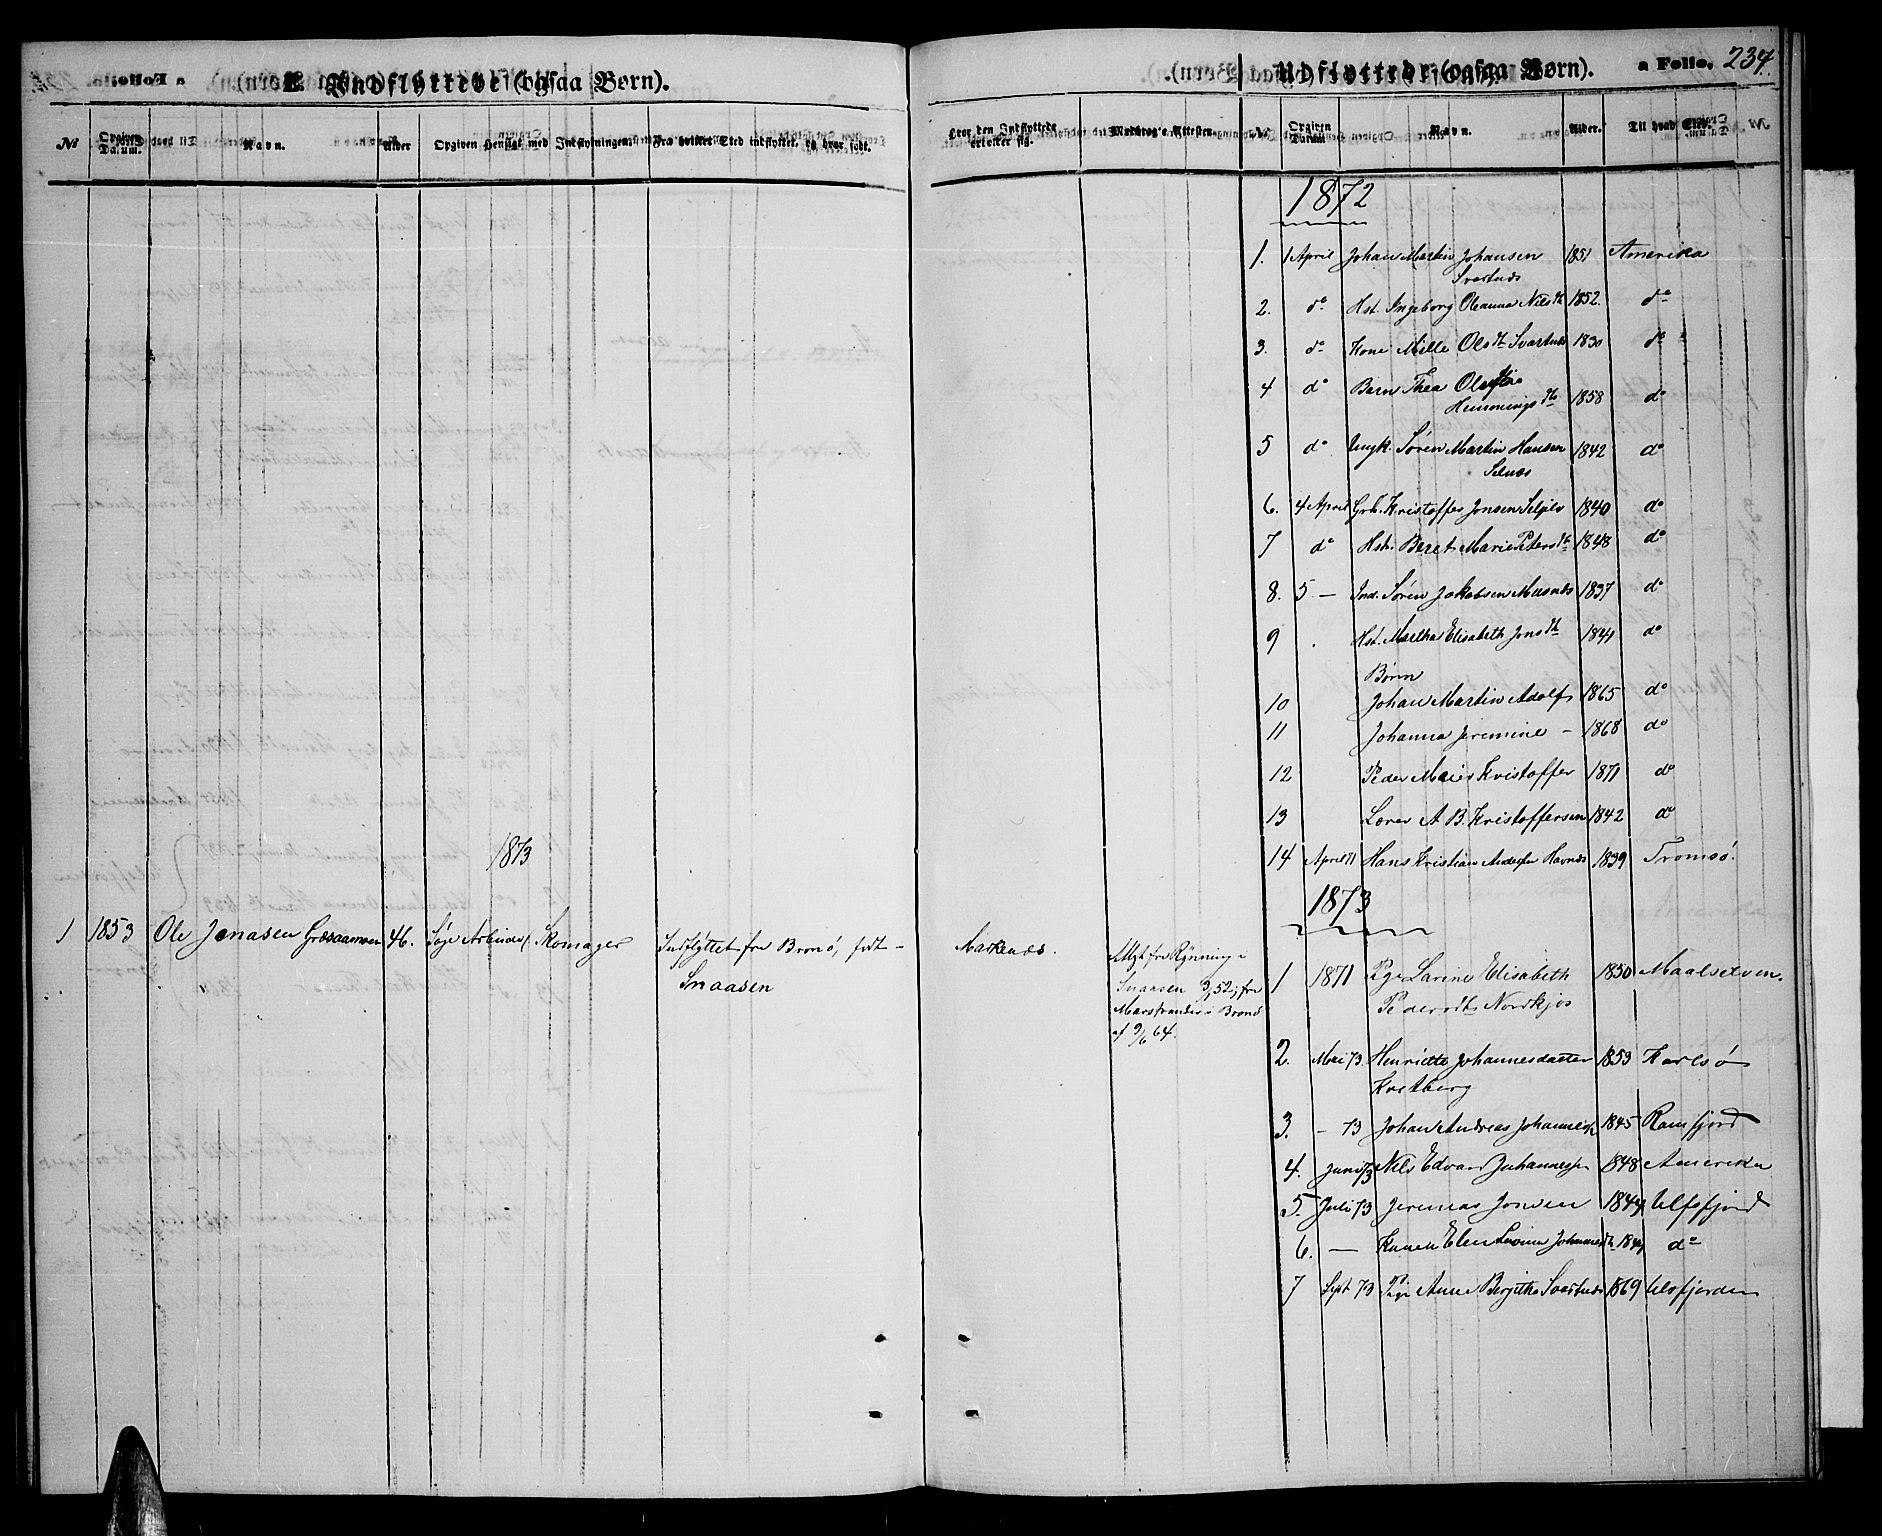 E. Indflyttede (ogsaa Børn).
№ Opgiven Datum. Navn. Alder Opgiven Hensigt med Indflytningen. Fra hvilket Sted indflyttet, og hvor født.
1873
1 1853 Ole Jonasen Græsaamoen 46. Søge Arbeide, Skomager Indflyttet fra Brønø, født
Snaasen
237.
Udflyttede (ogsaa Børn). a Folio.
Hvor den Indflyttede opholder sig. Modtagne Attester № Opgiven Datum Navn. Alder. Til hvad Sted
Markenæs.
Attest fra Rynning i
Snaasen 3/ 52; fra
Marstrander i Brønø
af 9/6 64.
1872
1. 1 April Johan Martin Johansen 1851 Amerika
Svartnæs
2. do Hst. Ingeborg Oleanna Nilsdt 1852. do
3. do Kone Mille Olsdt Svartnæs 1830 do
4 do Barn Thea Oline
Hemmingsdt 1858 do
5 do Ungk. Søren Martin Hansen 1842 do
Selnæs
6. 4 April Grb. Kristoffer Jonsen Seljelv 1840 do
7 do Hst. Beret Marie Pedersdt 1848 do
8. 5 — Ind. Søren Jakobsen Mesnæs 1837 do
9 . Hst. Martha Elisabeth Jonsdt 1841 do
Børn
10 Johan Martin Adolf 1865 do
11 Johanna Jeremine - 1868 do
12 Peder Meier Kristoffer 1871 do
13 Lærer A. B. Kristoffersen 1842 do
14 April 71 Hans Kristian Andersen Havnæs 1839 Tromsø.
1873
1 1871 Pige Larine Elisabeth 1850 Maalselven.
Pedersdt Nordkjos
2. Mai 73. Henriette Johannesdatter 1853 Karlsø
Kvitberg
3. — 73 Johan Andreas Johannes 1845 Ramfjord
4. Juni 73 Nils Edvard Johannes 1848 Amerika
5. Juli 73 Jeremias Jonsen 1844 Ulfsfjord
6. — Konen Elen Lovina Johannesdt 1844 do
7 Sept 73 Pige Anne Birgitha Svartnæs 1869 Ulfsfjorden